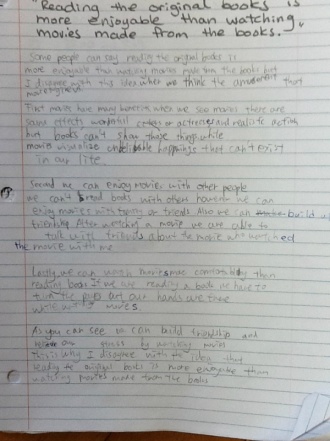 "Reading the original books is
more enjoyable than watching,
movies made from the books.
Some people can say reading the original books is
more enjoyable than watching movies made from the books but
I disagree with this idea when we think the that
movies give
First movies have many when we see movies there are
effects wonderful or actresses and realistic action
but books can't show those things while
movie visualize happenings that can't exist
in our life.
Second we can enjoy movies with other people
we can't read books with others however we can
enjoy movies with or friends Also we can build
friendship After watching a movie we are able to
talk with about the movie who watched
the movie with me
Lastly we can watch movies more comfortably than
reading books If we are reading a book we have to
turn the but our hands are free
movies.
As you can see we can build friendship and
our stress by watching movies
this is why I disagree with the idea that
reading the original books is more enjoyable than
watching movies made from the books